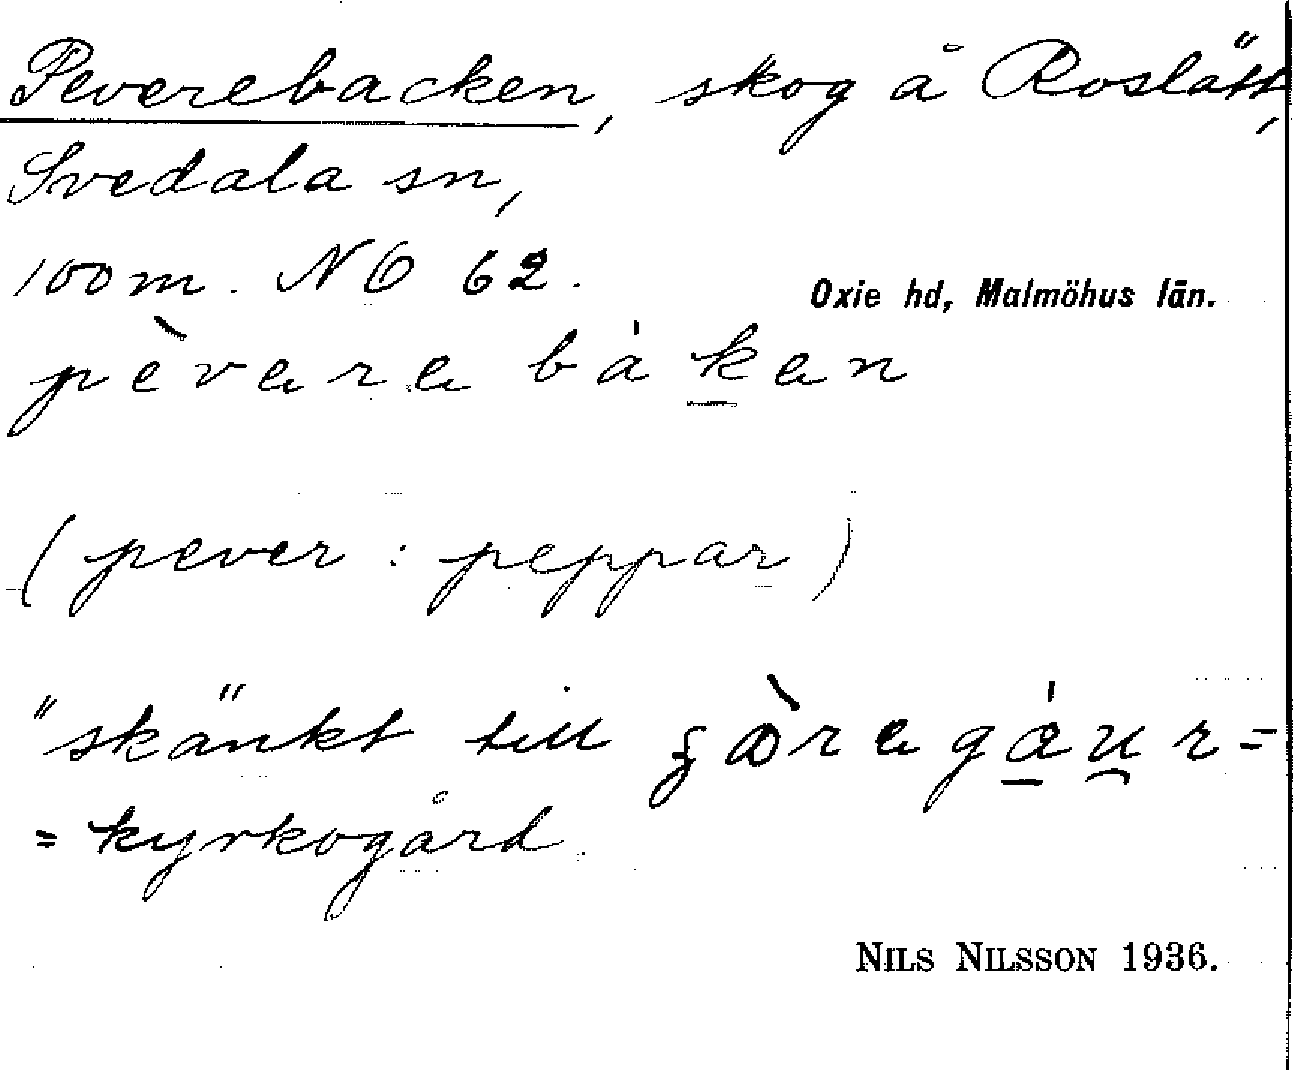 Peverebacken, skog å Roslätt,
Svedala sn,
100 m. NO 62.
Oxie hd, Malmöhus län.
pèvere båken
(pever : peppar)
"skänkt till
=kyrkogård.
NILS NILSSON 1936.